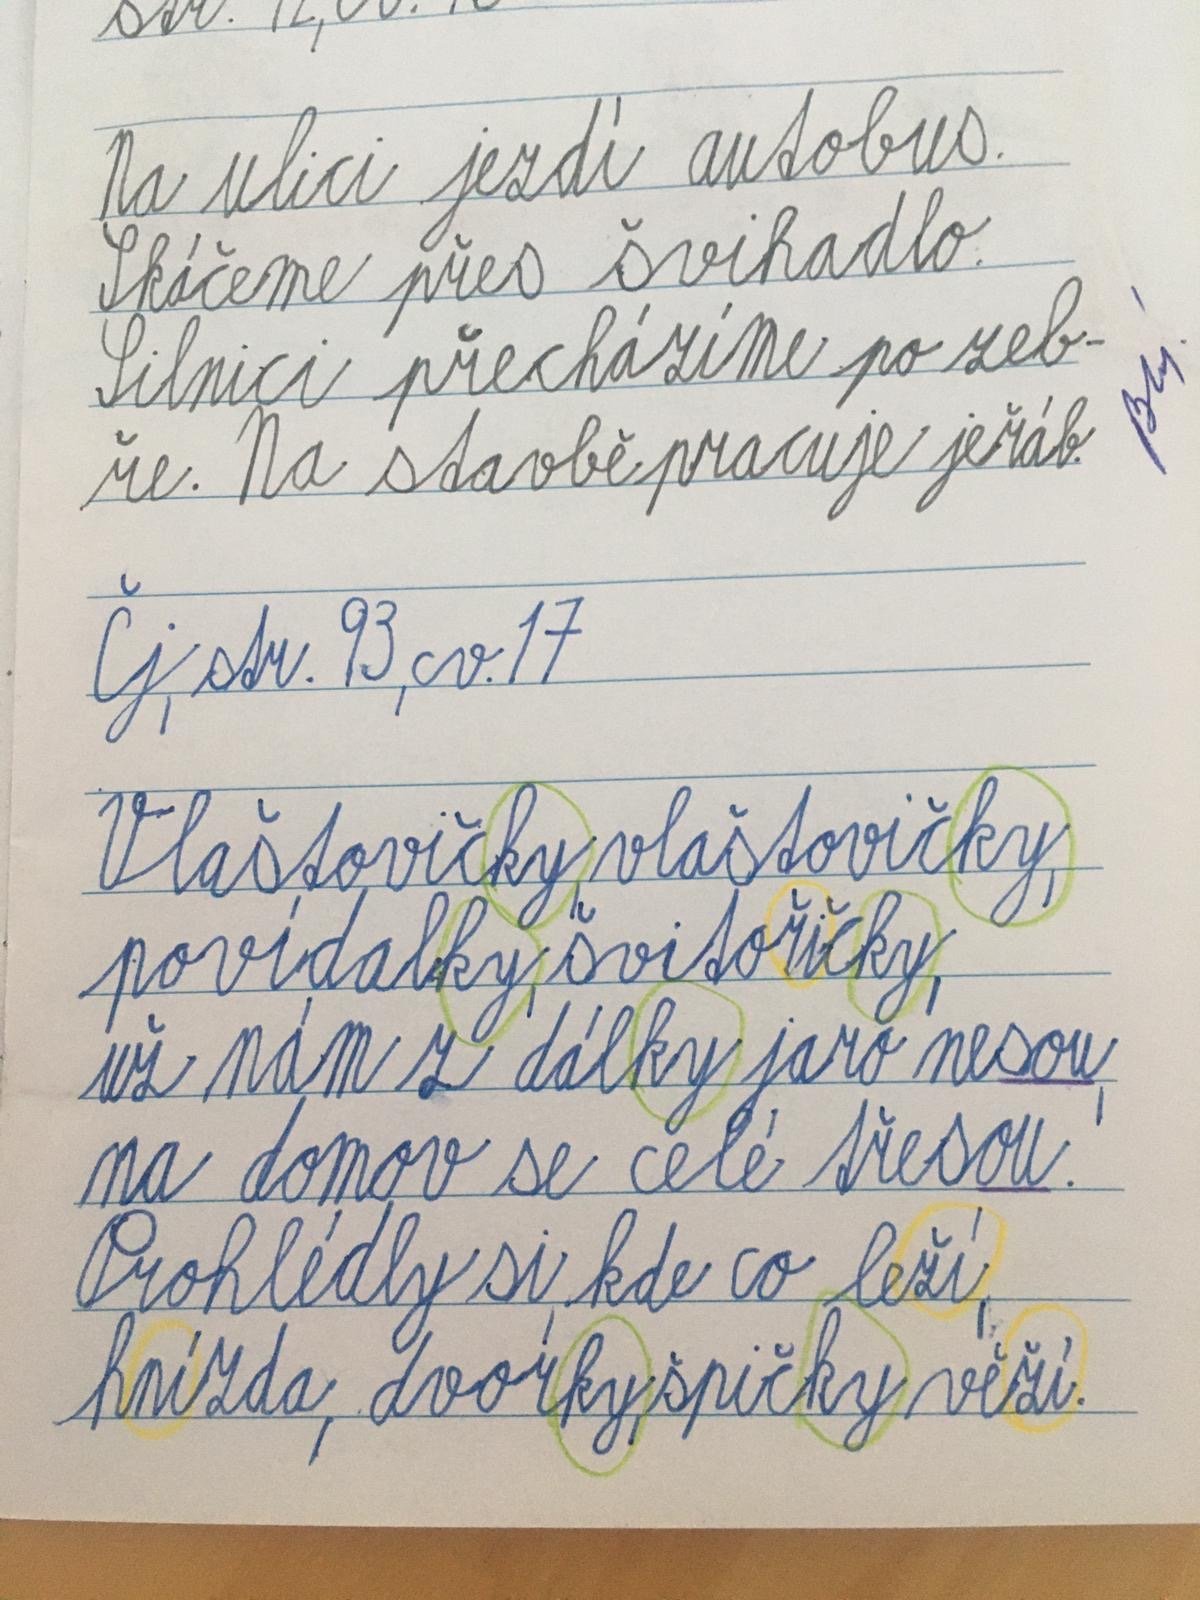 str. 12, cv. 
Na ulici jezdí autobus.
Skáčeme přes švihadlo.
Silnici přecházíme po zeb-
ře. Na stavbě pracuje jeřáb.
Čj, str. 93, cv. 17
Vlaštovičky, vlaštovičky,
povídalky, švitořičky,
už nám z dálky jaro nesou,
na domov se celé třesou.
Prohlédly si, kde co leží,
hnízda, dvorky, špičky věží.